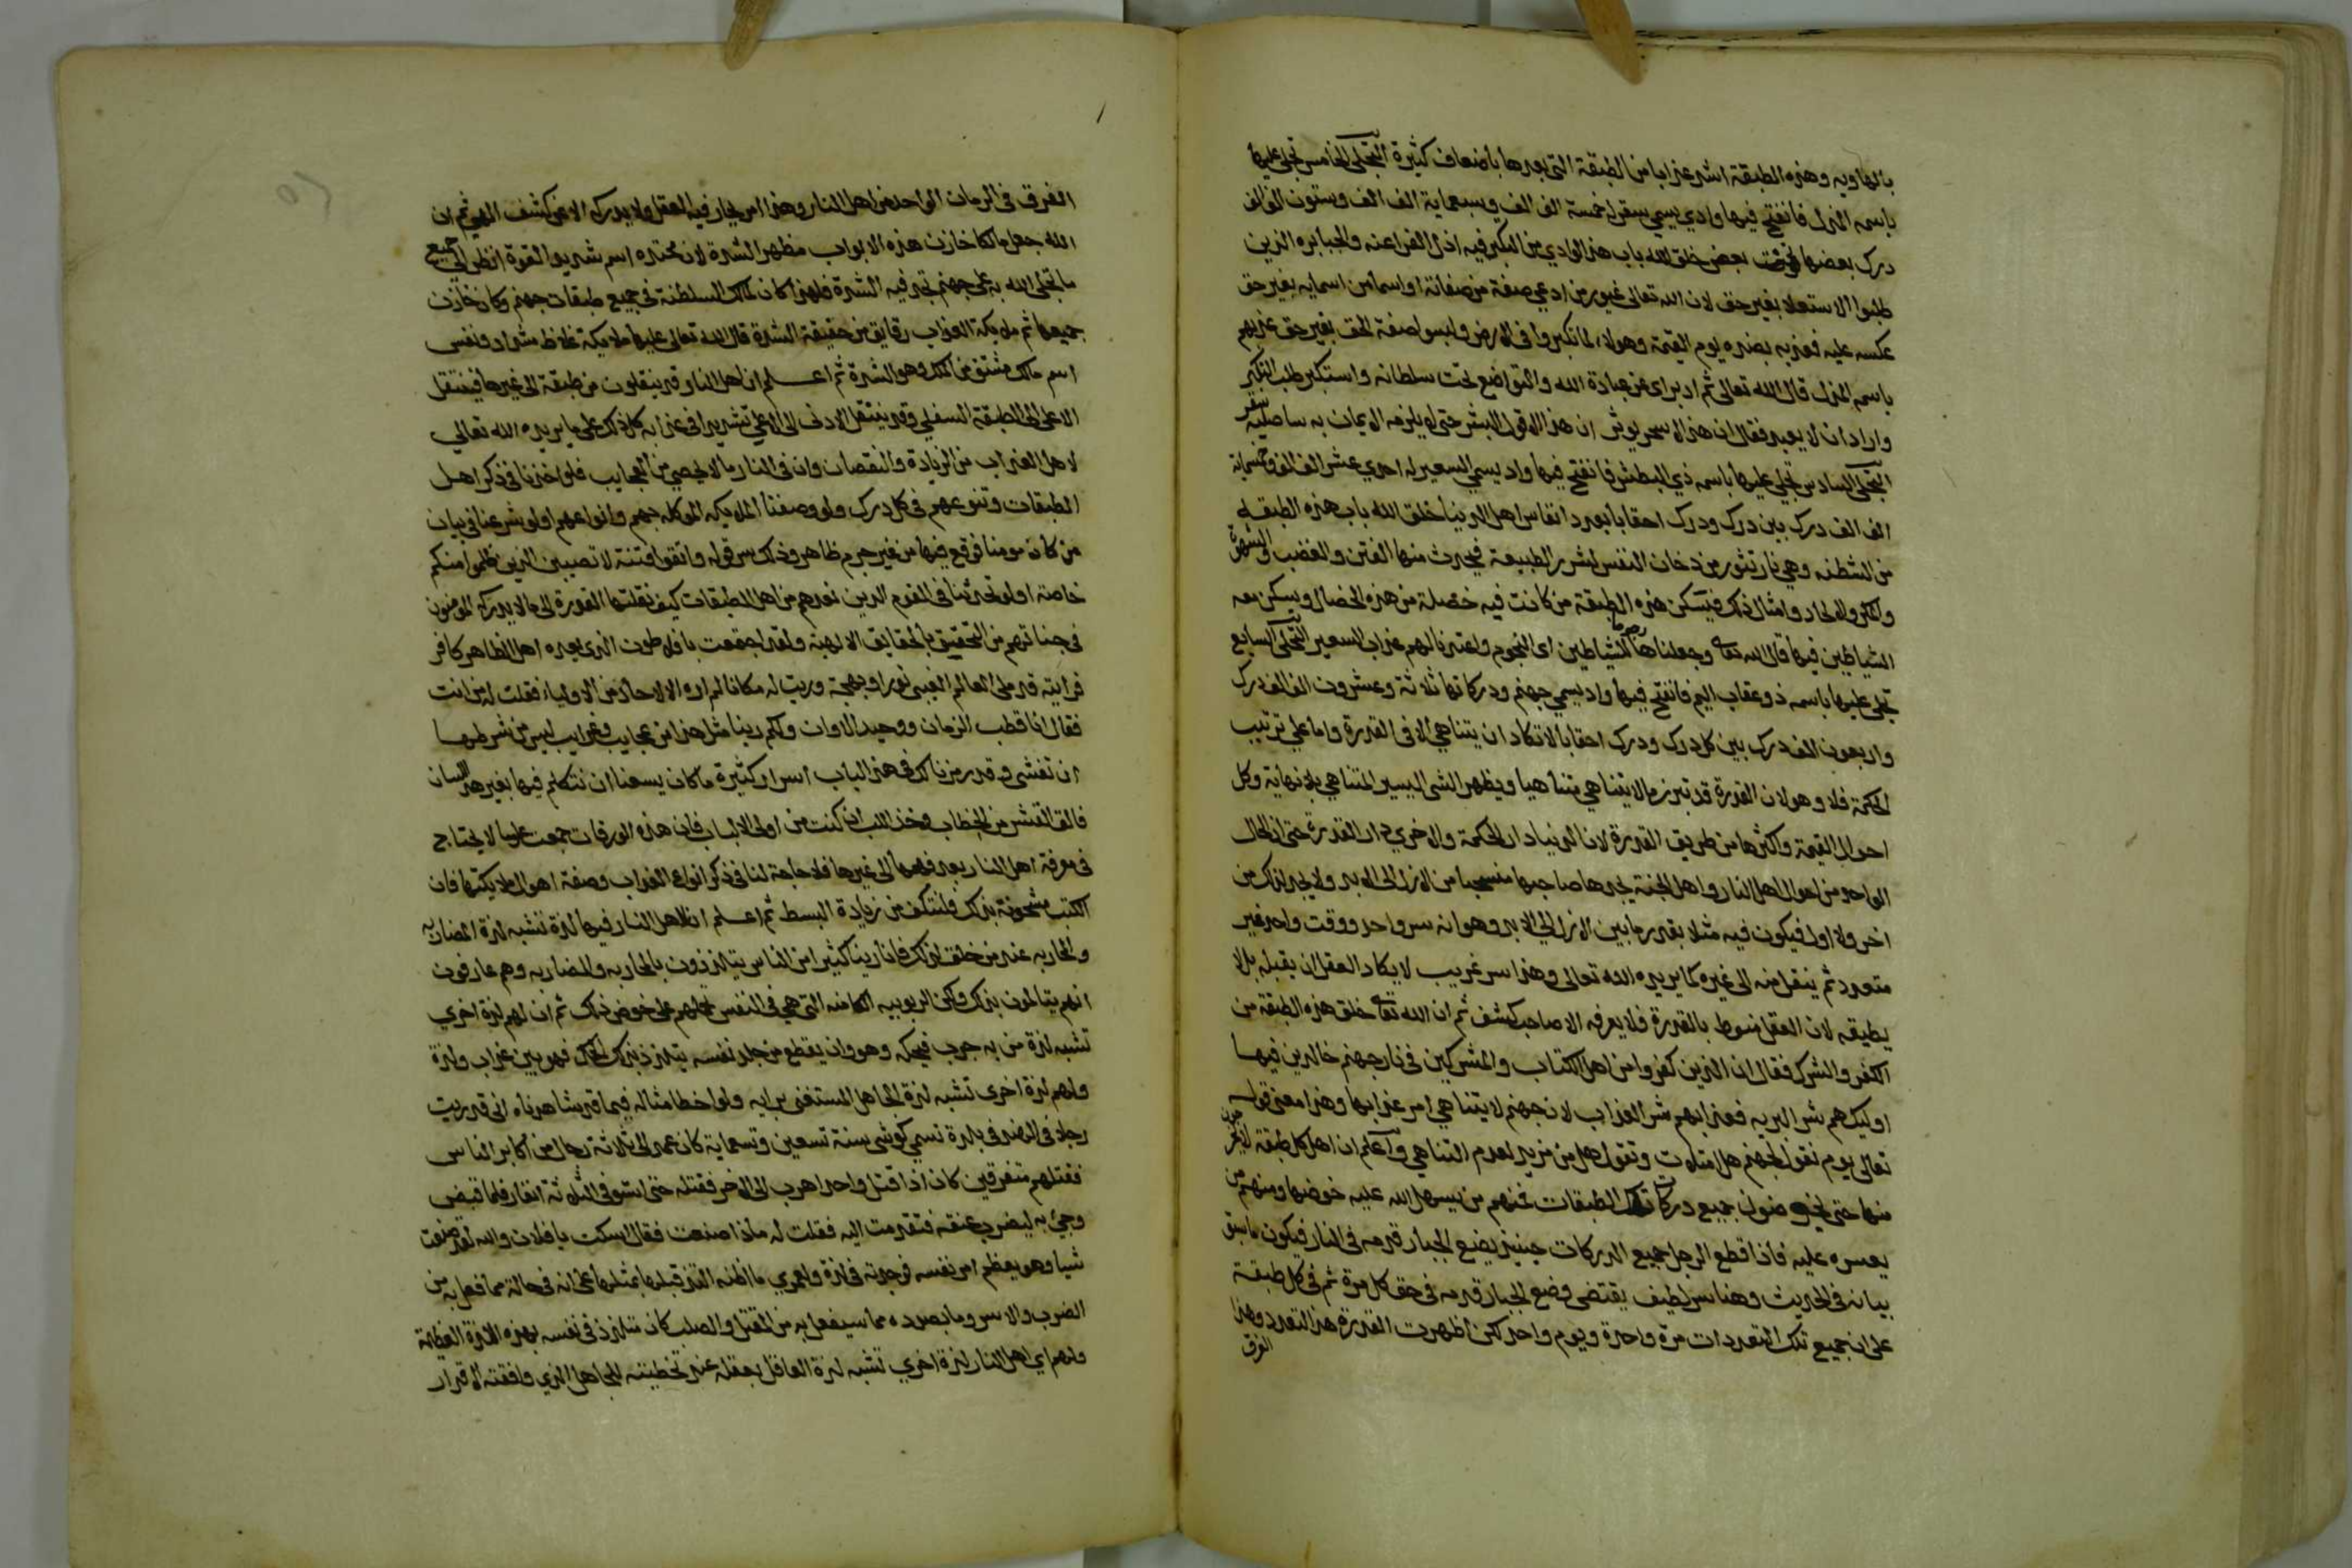 بالهاويه وهذه الطبقة اشد عذابا من الطبقة التي بعدها باضعاف كثيرة التجلي الخامس تجلي عليها
باسمه المذل فانفتح فيها وادي يسمي سقر له خمسة الف الف وسبعماية الف الف وستون الف الف
درك بعضها تحت بعض خلق الله باب هذا الوادي من التكبر فيه اذل الفراعنه والجبابره الذين
طلبوا الاستعلا بغير حق لان الله تعالى غيور من ادعي صفة من صفاته او اسما من اسمايه بغير حق
عكسه عليه فعذبه بضده يوم القيمة وهولاء لما تكبروا في الارض ولبسوا صفة الحق بغير حق عذبهم
باسمه المذل قال الله تعالى ثم ادبر اي عن عبادة الله والتواضع تحت سلطانه واستكبر طلب التكبر
واراد ان لا يعبد فقال ان هذا الا سحر يوثر ان هذا الا قول البشر حتى لا يلزمه الايمان به ساصليه سقر
التجلي السادس تجلي عليها باسمه ذي البطش فانفتح فيها واد يسمي السعير له احدي عشر الف الف وخمسماية
الف الف درك بين درك ودرك احقابا بعدد انفاس اهل الدنيا خلق الله باب هذه الطبقه
من الشطنه وهي نار تثور من دخان النفس بشرر الطبيعة فيحدث منها الفتن والغضب والشهوة
والمكر والالحاد وامثال ذلك فيسكن هذه الطبقة من كانت فيه خصلة من هذه الخصال ويسكن معه
الشياطين فيها قال الله تعالى وجعلناها رجوما للشياطين اي النجوم واعتدنا لهم عذاب السعير التجلي السابع
تجلي عليها باسمه ذو عقاب اليم فانفتح فيها واد يسمي جهنم ودركاتها ثلاثة وعشرون الف الف درك
واربعون الف درك بين كل درك ودرك احقابا لا تكاد ان يتناهي الا في القدرة واما علي ترتيب
الحكمة فلا وهو لان القدرة قد تبرز ما لا يتناهي متناهيا ويظهر الشي اليسير المتناهي بلا نهاية وكل
احوال القيمة واكثرها من طريق القدرة لان الدنيا دار الحكمة والاخري دار القدرة حتى ان الحال
الواحد من احوال اهل النار واهل الجنة يجدها صاحبها منسحبا من الازل الى الابد ولا يجد لذلك من
اخر ولا اول فيكون فيه مثلا بقدر ما بين الازل الي الابد وهو انه سر واحد ووقت واحد غير
متعدد ثم ينقل منه الى غيره كما يريده الله تعالى وهذا سر غريب لا يكاد العقل ان يقبله بل لا
يطيقه لان العقل منوط بالقدرة فلا يعرفه الا صاحب كشف ثم ان الله تعالى خلق هذه الطبقة من
الكفر والشرك فقال ان الذين كفروا من اهل الكتاب والمشركين في نار جهنم خالدين فيها
اوليك هم شر البريه فعذابهم شر العذاب لان جهنم لا يتناهي امر عذابها وهذا معنى قوله
تعالى يوم نقول لجهنم هل امتلات وتقول هل من مزيد لعدم التناهي واعلم ان اهل كل طبقة لا يخرجون
منها حتى يخوضون جميع دركات تلك الطبقات فمنهم من يسهل الله عليه خوضها ومنهم من
يعسره عليه فاذا قطع الرجل جميع الدركات حينيذ يضع الجبار قدمه في النار فيكون ما سبق
بيانه في الحديث وهنا سر لطيف يقتضي وضع الجبار قدمه في حق كل مرة ثم في كل طبقة
على ان جميع تلك التعددات مرة واحدة ويوم واحد لكن اظهرت القدرة هذا التعدد وهذا
الفرق
الفرق في الزمان الواحد من اهل النار وهذا امر يحار فيه العقل ولا يدركه الا عن كشف الهي ثم ان
الله جعل مالكا خازن هذه الابواب مظهر الشدة لان محتده اسم شديد القوة انظر الي جميع
ما تجلي الله به على جهنم تجد فيه الشدة فلهذا كان لمالك السلطنة في جميع طبقات جهنم وكان خازن
جميعها ثم ملايكة العذاب رقايق من حقيقة الشدة قال الله تعالى عليها ملايكة غلاظ شداد ونفس
اسم مالك مشتق من الملك وهو الشدة ثم اعلم ان اهل النار قد ينقلون من طبقة الى غيرها فينتقل
الاعلى الى الطبقة السفلي وقد ينتقل الادنى الى الاعلي تشديدا في عذابه كل ذلك علي ما يريده الله تعالي
لاهل العذاب من الزيادة والنقصان وان في النار ما لا يحصي من العجايب فلو اخذنا في ذكر اهل
الطبقات وتنوعهم في كل درك ولو وصفنا الملايكه الموكله بهم وانواعهم او لو شرعنا في بيان
من كان مومنا فوقع فيها من غير جرم ظاهر وذلك سر قوله واتقوا فتنة لا تصيبن الذين ظلموا منكم
خاصة او لو تحدثنا في القوم الذين نعدهم من اهل الطبقات كيف نقلتها القدرة الى ما لا يدركه المومنون
في جناتهم من التحقيق بالحقايق الالهية ولقد اجتمعت بافلاطون الذي يعده اهل الظاهر كافر
فرايته قد ملا العالم الغيبي نورا وبهجة وريت له مكانا لم اره الا لاحاد من الاولياء فقلت له من انت
فقال انا قطب الزمان ووحيد الاوان ولكم رينا مثل هذا من عجايب وغرايب ليس من شرطها
ان تفشى وقد رمزنا لك في هذا الباب اسرار كثيرة ما كان يسعنا ان نتكلم فيها بغير هذا اللسان
فالق القشر من الخطاب وخذ اللب ان كنت من اولى الالباب فان هذه الورقات جمعت علوما لا يحتاج
في معرفة اهل النار بعد فهمها الى غيرها فلا حاجة لنا في ذكر انواع العذاب وصفة اهوال ملايكتها فان
الكتب مشحونة بذلك فلنكتف من زيادة البسط ثم اعلم ان لاهل النار فيها لذة تشبه لذة المضاربه
والمحاربه عند من خلق لذلك فانا رينا كثير من الناس يتلذذون بالمحاربه والمضاربه وهم عارفون
انهم يتالمون بذلك ولكن الربوبيه الكامنه التي هي في النفس تحملهم على خوض ذلك ثم ان لهم لذة اخري
تشبه لذة من به جرب فيحكه وهو وان يقطع من جلد نفسه يتلذذ بذلك الحك فهو بين عذاب ولذة
ولهم لذة اخرى تشبه لذة الجاهل المستغني برايه ولو اخطا مثاله فيما قد شاهدناه اني قد ريت
رجلا في الهند في بلدة تسمي كوشى سنة تسعين وتسعماية كان عمد الى ثلاثة رجال من اكابر الناس
فقتلهم متفرقين كان اذا قتل واحدا هرب الى الاخر فقتله حتى استوفى الثلاثة انفار فلما قبض
وجئ به ليضرب عنقه فتقدمت اليه فقلت له ماذا صنعت فقال اسكت يا فلان والله لقد صنعت
شيا وهو يعظم امر نفسه فوجدته في لذة ولعمري ما اظنه التذ قبلها بمثلها على انه في حالة مما فعل به من
الضرب والاسر وما بصدده مما سيفعل به من القتل والصلب كان متلذذ في نفسه بهذه اللذة العظيمة
ولهم اي اهل النار لذة اخري تشبه لذة العاقل بعقله عند تخطيته للجاهل الذي وافقته الاقدار